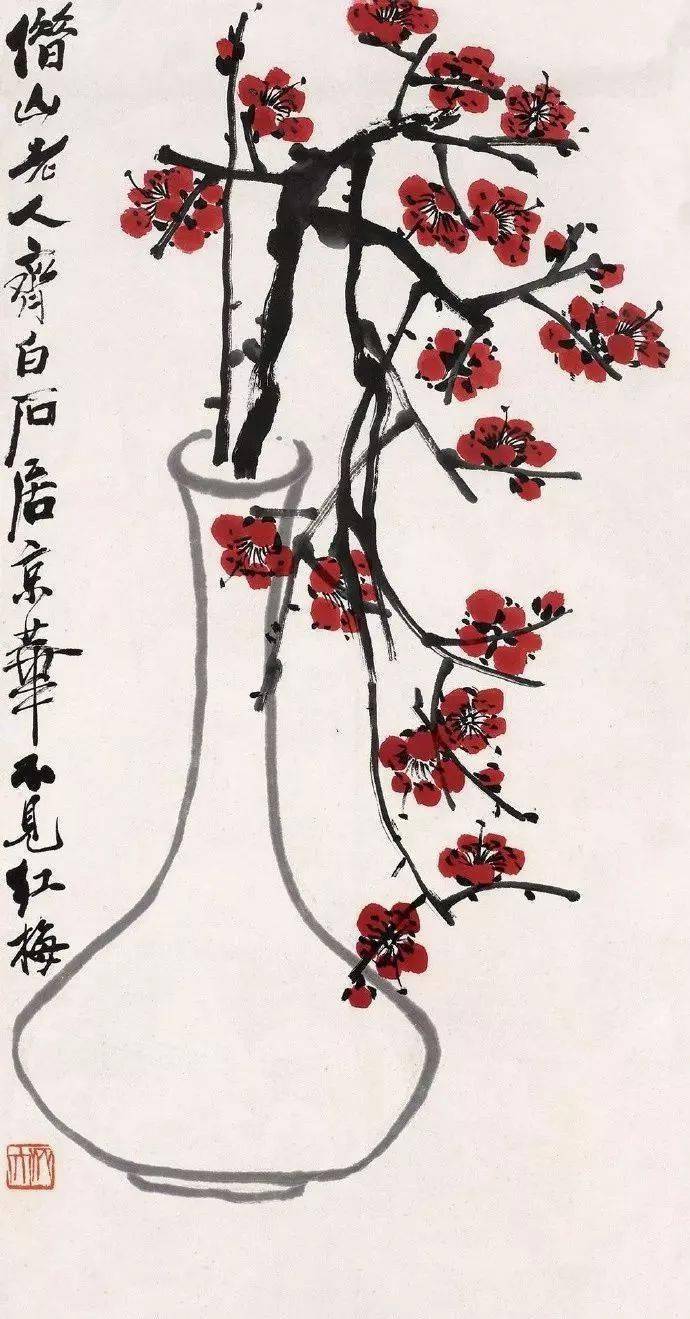 借山老人齊白石居京華不見紅梅